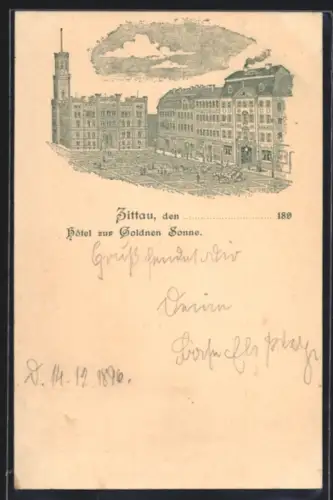 Zittau, den ........................ 189
Hôtel zur Goldnen Sonne.
Gruß sendet dir
Deine
D. 14-12 1896.